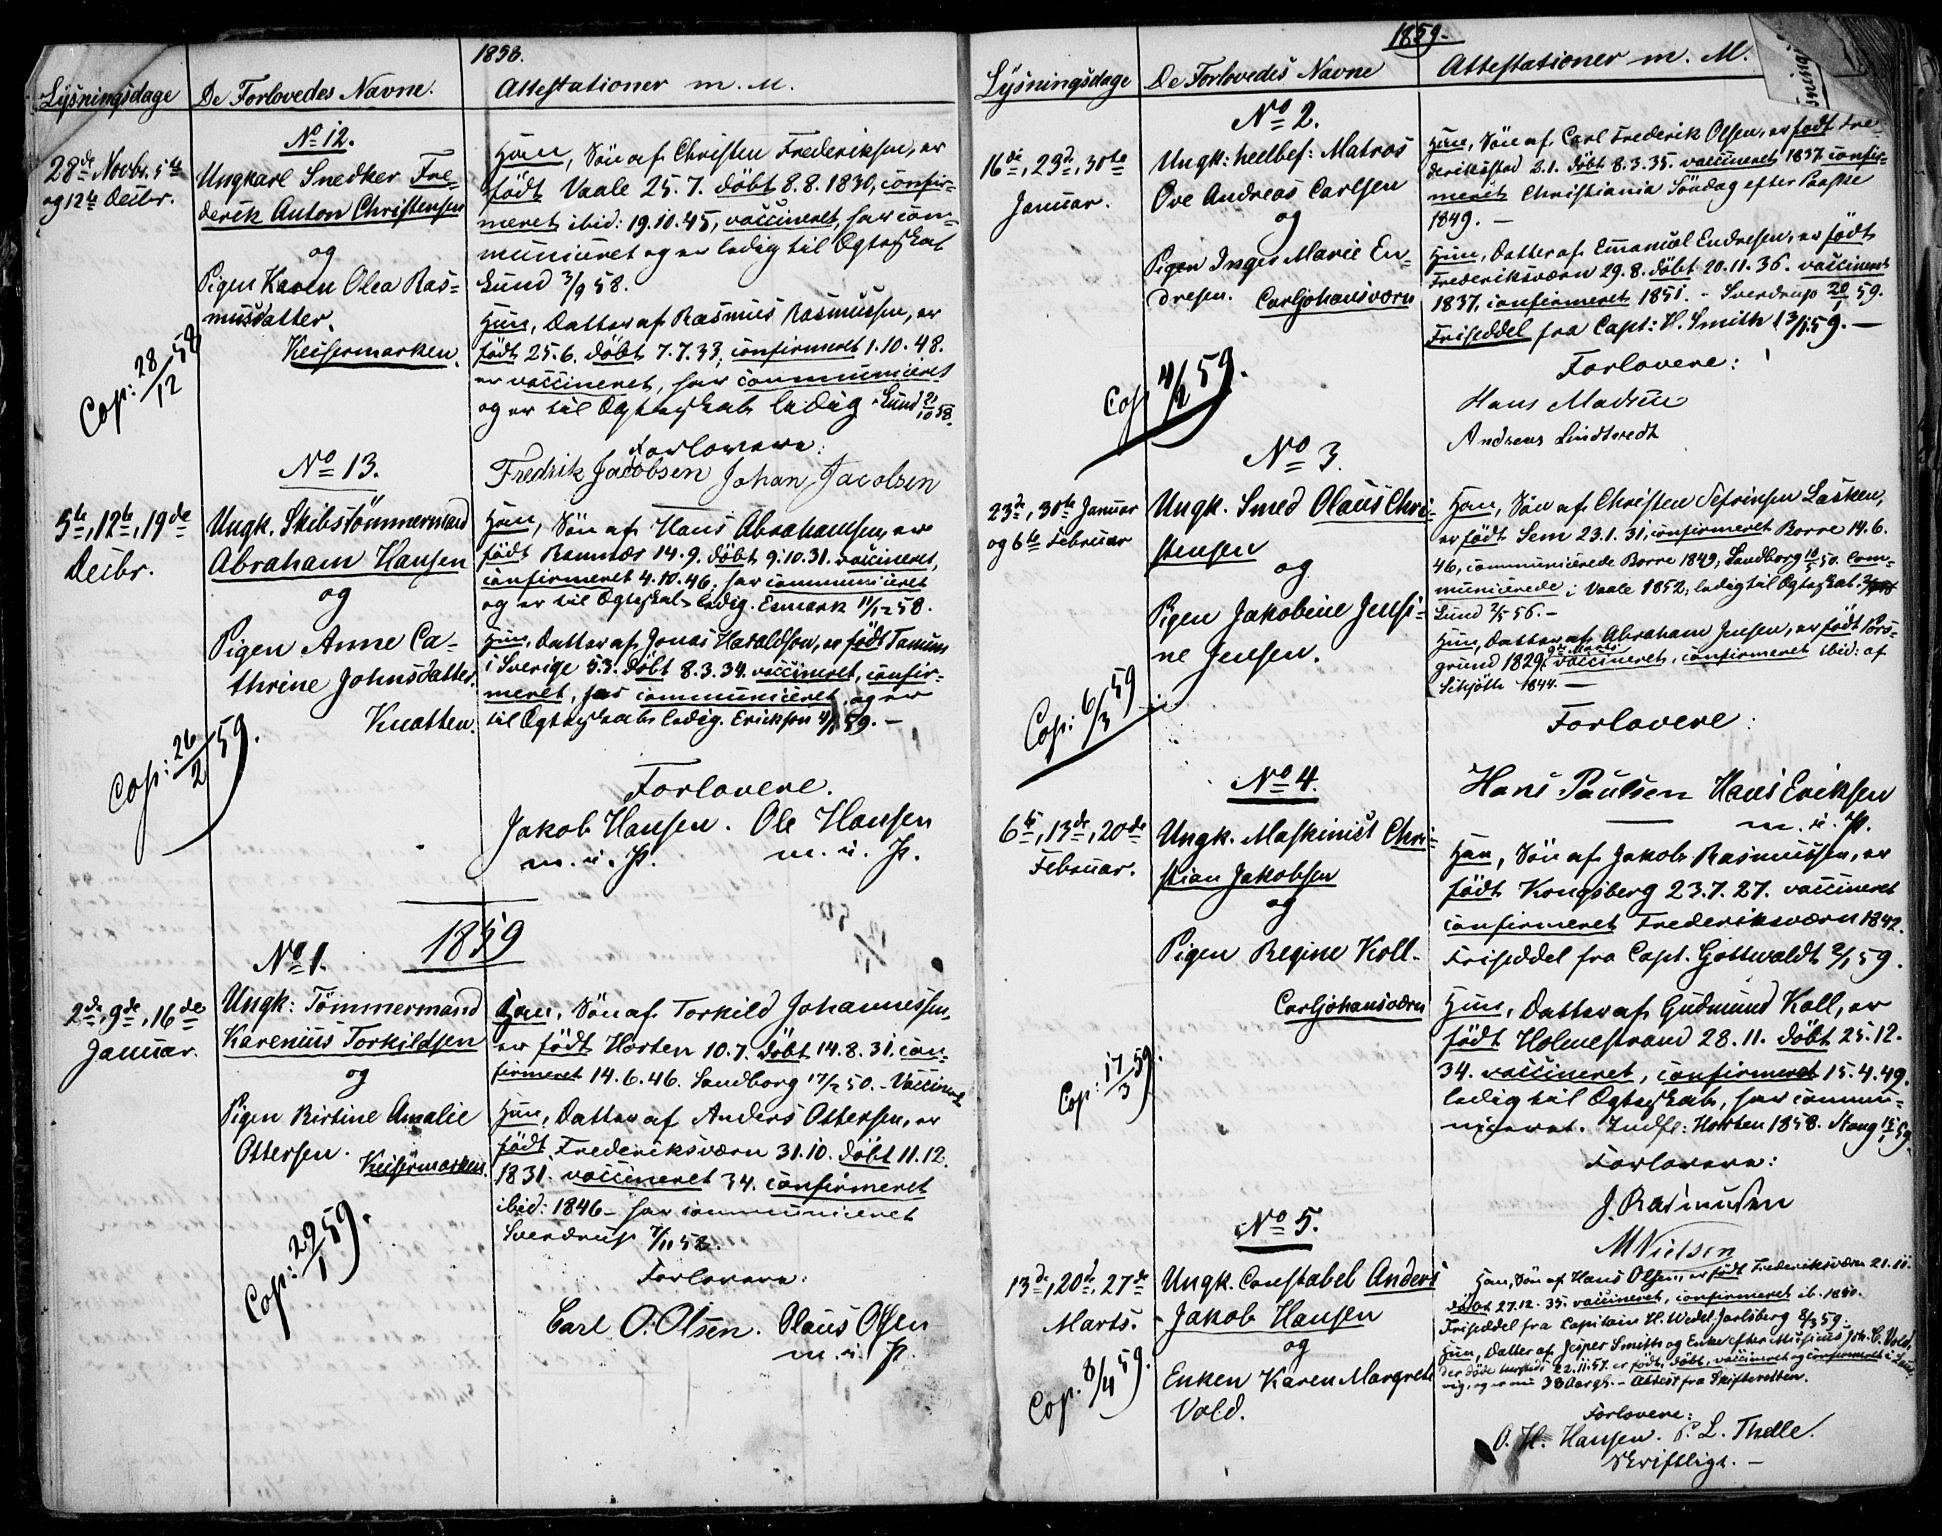 1858.
Lysningsdage
De Forlovedes Navne.
Attestationer m. M.
28de Novbr. 5te
og 12te Decbr.
No 12.
Ungkarl Snedker Fre-
derik Anton Christensen
og
Pigen Karen Olea Ras-
musdatter.
Keisermarken.
Cop: 28/12 58
Han, Søn af Christen Frederiksen, er
født Vaale 25.7. døbt 8.8.1830, confir-
meret ibid: 19.10.45, vaccineret, har com-
municeret og er ledig til Ægteskab
Lund 3/9 58.
Hun, Datter af Rasmus Rasmussen, er
født 25.6. døbt 7.7.33, confirmeret 1.10.48.
er vaccineret, har communiceret
og er til Ægteskab ledig. Lund 2/10 58.
Forlovere:
Fredrik Jacobsen Johan Jacobsen
5te, 12te, 19de
Decbr.
No 13.
Ungk. Skibstømmermand
Abraham Hansen
og
Pigen Anne Ca-
thrine Johnsdatter.
Knatten.
Cop: 26/2 59.
Han, Søn af Hans Abrahamsen, er
født Ramnæs 14.9. døbt 9.10.31. vaccineret,
confirmeret 4.10.46. har communiceret
og er til Ægteskab ledig. Esmark 11/12 58.
Hun, Datter af Jonas Haraldson, er født Tanum
i Sverige 5.3. døbt 8.3.34. vaccineret, confir-
meret, har communiceret, og er
til Ægteskabs ledig. Erickson 4/1 59. –
Forlovere.
Jakob Hansen. Ole Hansen
m. i. P. m. i. P.
1859
2de, 9de, 16de
Januar.
No 1.
Ungk: Tømmermand
Karenius Torkildsen
og
Pigen Kirtine Amalie
Ottersen.
Keisermarken
Cop: 29/1 59.
Han, Søn af Torkild Johannessen,
er født Horten 10.7. døbt 14.8.31. con-
firmeret 14.6.46. Sandborg 17/2 50. – Vaccineret
Hun, Datter af Anders Ottersen, er
født Frederiksværn 31.10. døbt 11.12.
1831. vaccineret 34. confirmeret
ibid: 1846 – har communiceret
Sverdrup 7/11 58.
Forlovere:
Carl O. Olsen. Olaus Olsen
m. i. P.
1859.
Lysningsdage
De Forlovedes Navne
Attestationer m. M.
16de, 23de, 30te
Januar.
No 2.
Ungk: hellbef: Matros
Ove Andreas Carlsen
og
Pigen Inger Marie En-
dresen. Carljohansværn
Cop 4/2 59.
Han, Søn af Carl Frederik Olsen, er født Fre-
derikstad 2.1. døbt 8.3.35. vaccineret 1837 confir-
meret Christiania Søndag efter Paaske
1849. –
Hun, Datter af Emanuel Endresen, er født
Frederiksværn 29.8. døbt 20.11.36. vaccineret
1837, confirmeret 1851. – Sverdrup 20/1 59.
Friseddel fra Capt: H. Smith 13/1 59. –
Forlovere:
Hans Madsen
Andreas Lindtvedt
23de, 30te Januar
og 6te Februar
No 3.
Ungk. Smed Olaus Chri-
stensen
og
Pigen Jakobine Jensi-
ne Jensen.
Cop: 6/3 59
Han, Søn af Christen Sefrinsen Lasken,
er født Sem 23.1.31, confirmeret Borre 14.6.
46, communicerede Borre 1849, Sandborg 50. Com-
municerede i Vaale 1852, ledig til Ægteskab.
Lund 2/5 56. –
Hun, Datter af Abraham Jensen, er født Pors-
grund 1829. 9de Marts vaccineret, confirmeret ibid: af
Schjøth 1844. –
Forlovere:
Hans Paulsen Hans Eriksen
m. i. P.
6te, 13de, 20de
Februar.
No 4.
Ungk. Maskinist Chri-
stian Jakobsen
og
Pigen Regine Koll.
Carljohansværn
Cop: 17/3 59.
Han, Søn af Jakob Rasmussen, er
født Kongsberg 23.7.27. vaccineret
confirmeret Frederiksværn 1842.
Friseddel fra Capt. Gottwaldt 2/1 59.
Hun, Datter af Gudmund Koll, er
født Holmestrand 28.11. døbt 25.12.
34. vaccineret, confirmeret 15.4.49.
ledig til Ægteskab, har commu-
niceret. Indfl: Horten 1858. 59.
Forlovere:
J. Rasmusen
M Nielsen
13de, 20de, 27de
Marts.
No 5.
Ungk. Constabel Anders
Jakob Hansen
og
Enken Karen Margrete
Vold.
Cop. 8/4 59.
Han, Søn af Hans Olsen, er født Frederiksværn 21.11.
døbt 27.12.35. vaccineret, confirmeret ib. 1850.
Friseddel fra Capitain H. Wedel Jarlsberg 8/3 59.
Hun, Datter af Jesper Smith og Enke efter Joh. C. Vold,
der døde 22.11.57. er født, døbt, vaccineret og confirmeret i Laur-
vig, og er nu 38 Aar gl. – Attest fra Skifteretten.
Forlovere:
O. H. Hansen. P. L. Thelle.
Skriftligt. –